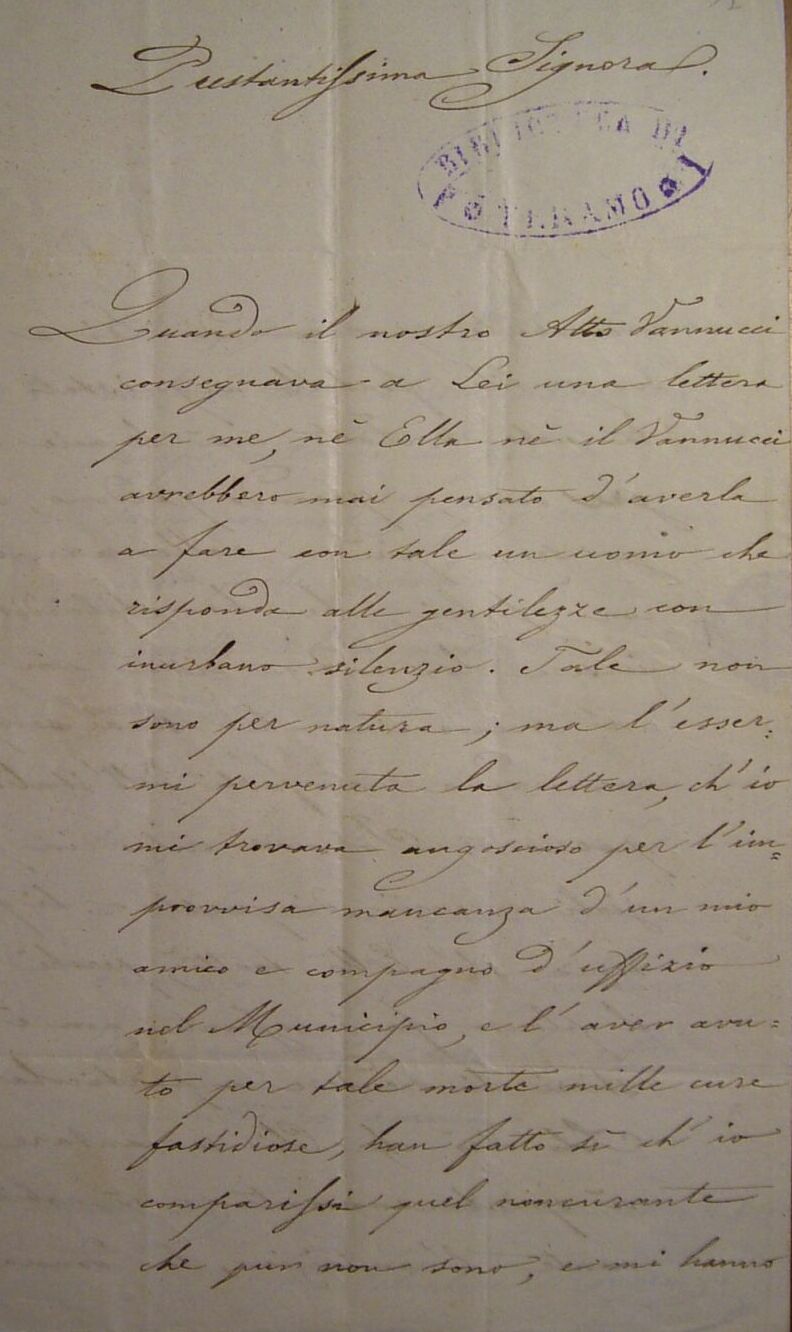 Prestantissima Signora.
BIBLIOTECA DI
TERAMO
Quando il nostro Atto Vannucci
consegnava a Lei una lettera
per me, nè Ella nè il Vannucci
avrebbero mai pensato d'averla
a fare con tale un uomo che
risponda alle gentilezze con
inurbano silenzio. Tale non
sono per natura; ma l'esser-
mi pervenuta la lettera, ch'io
mi trovava angoscioso per l'im=
provvisa mancanza d'un mio
amico e compagno d'uffizio
nel Municipio, e l'aver avu=
to per tale morte mille cure
fastidiose, han fatto sì ch'io
comparissi quel noncurante
che pur non sono, e mi hanno